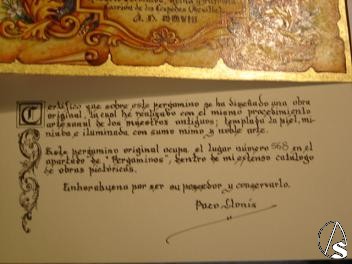 Carrión de los Céspedes (Sevilla)
A. D. MMVIII
Certifico que sobre este pergamino se ha diseñado una obra
original, la cual he realizado con el mismo procedimiento
artesanal de los maestros antiguos; templada la piel, mi-
niada e iluminada con sumo mimo y noble arte.
Este pergamino original ocupa el lugar número 568 en el
apartado de "Pergaminos", dentro de mi extenso catálogo
de obras pictóricas.
Enhorabuena por ser su poseedor y conservarlo.
Paco Llonis